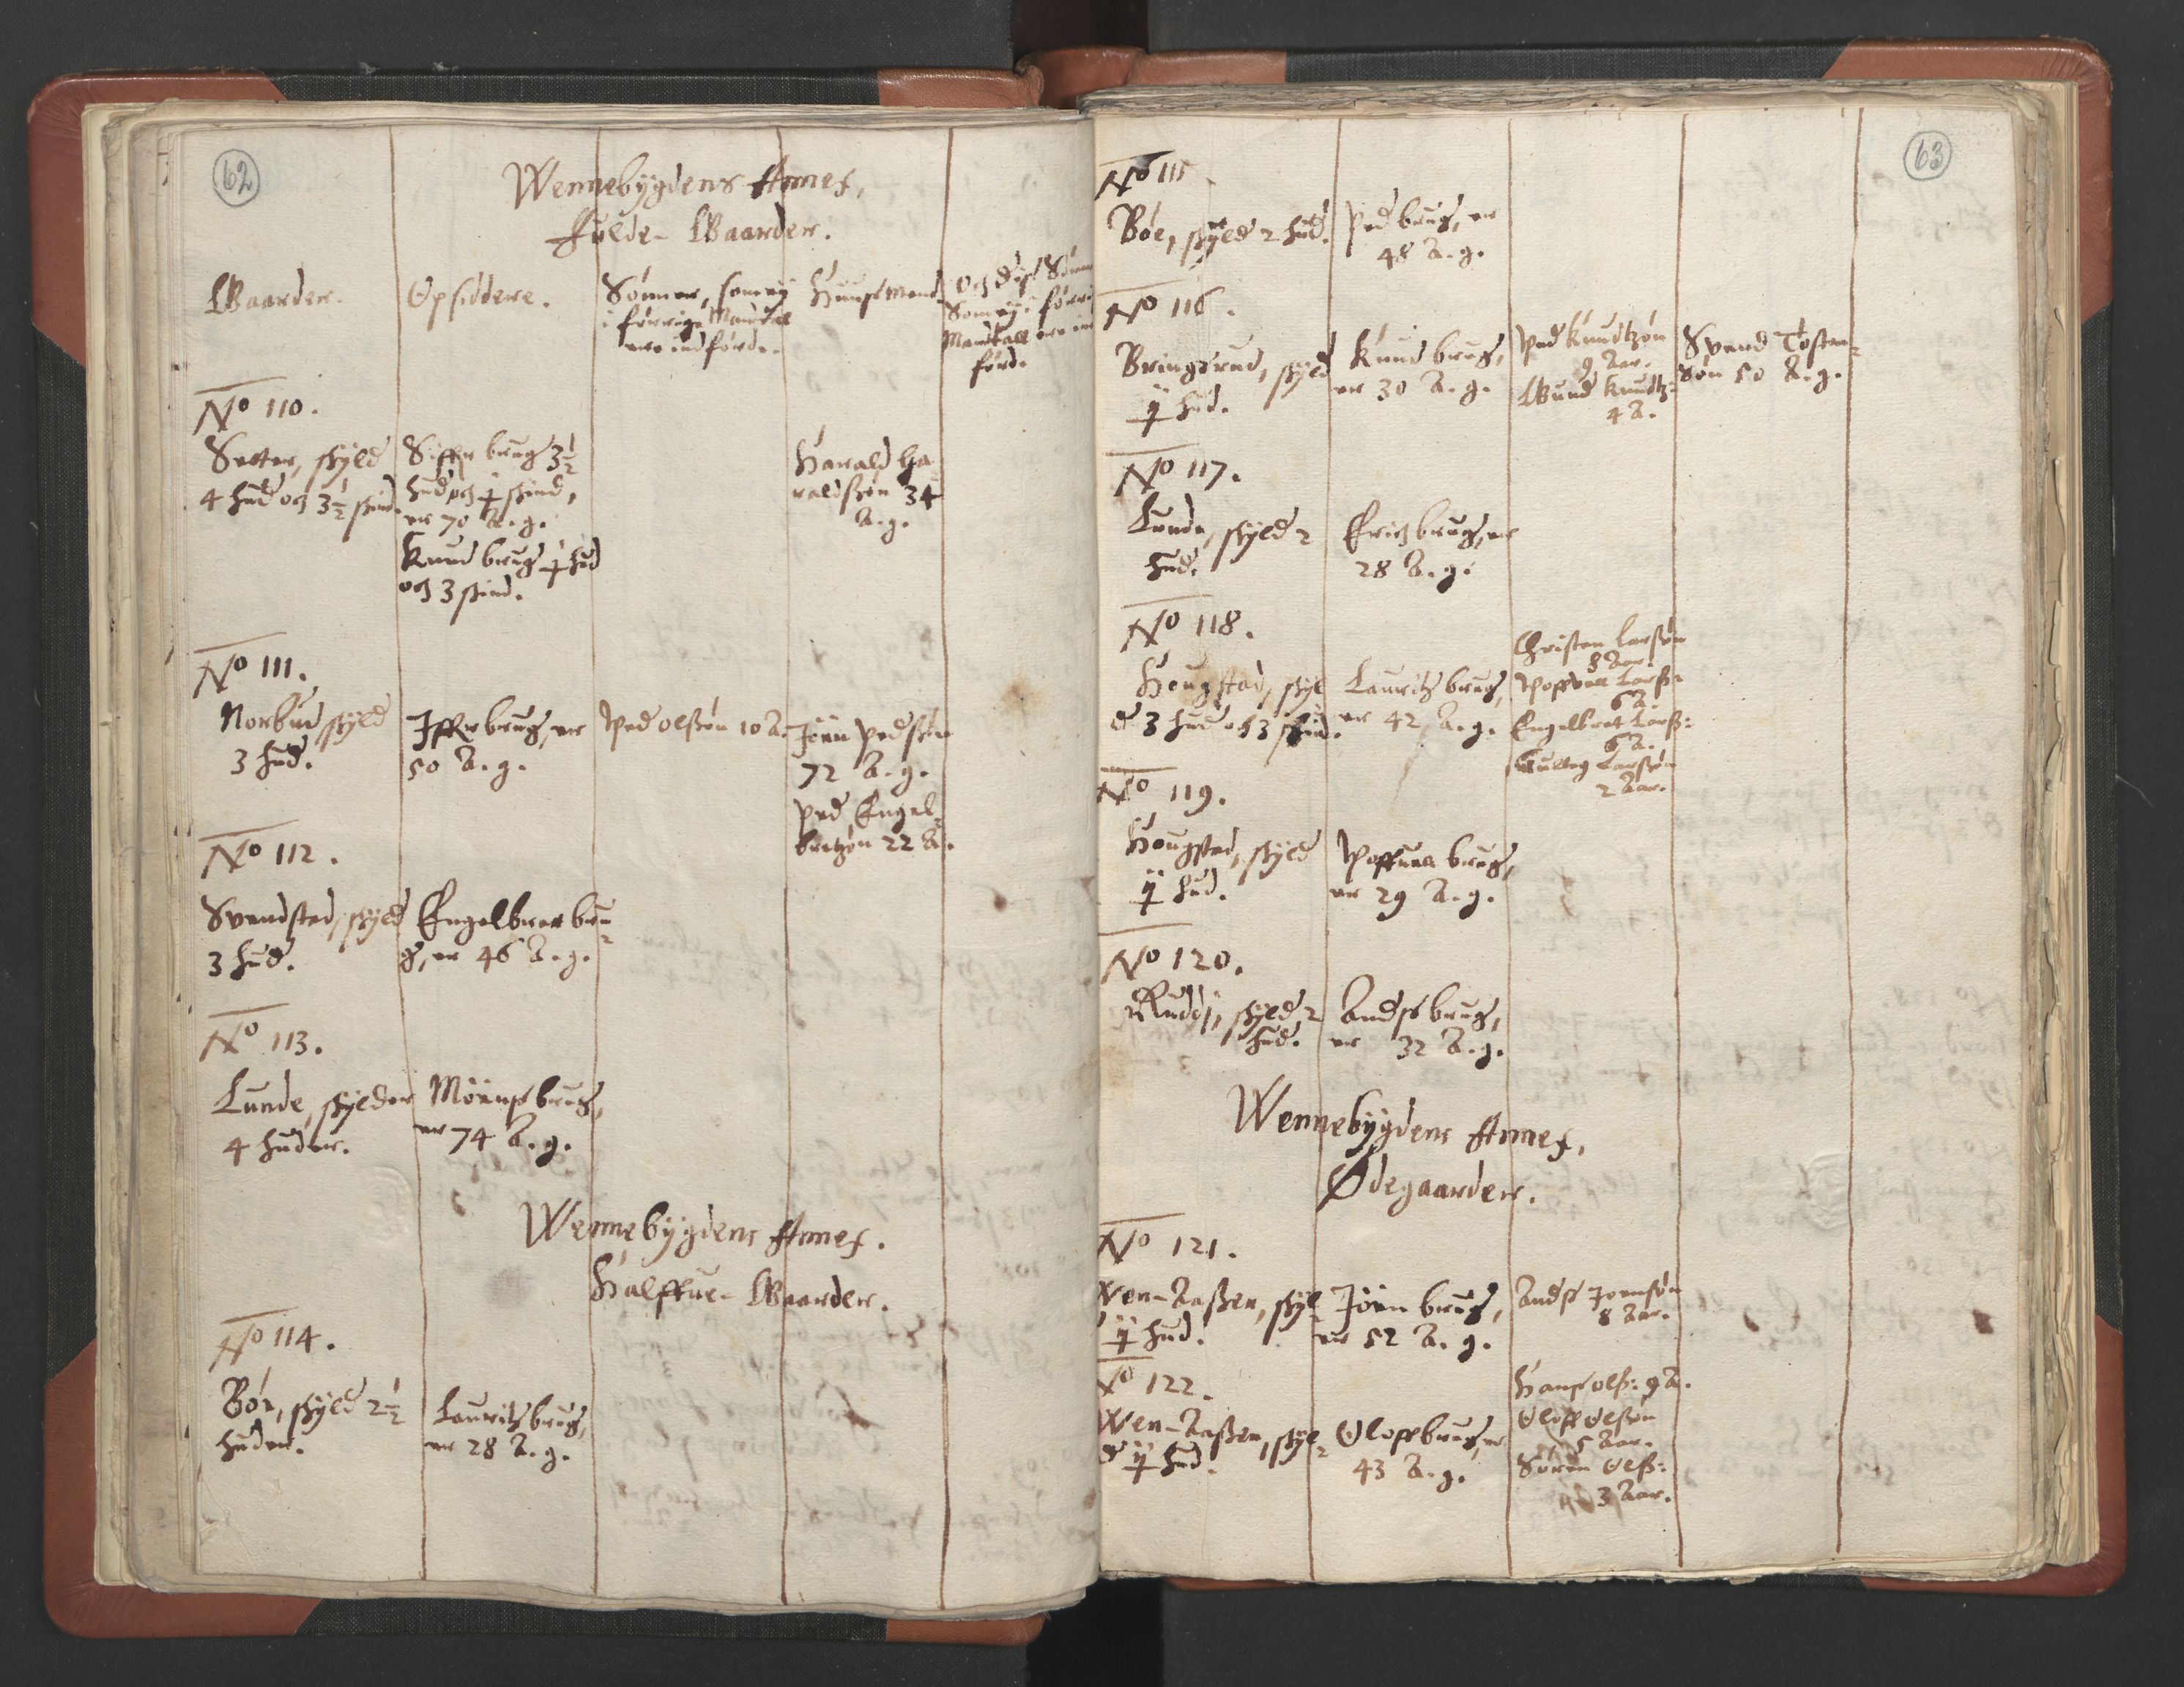 62
Wennebygdens Annex,
fulde- Gaarder.
Gaarder.
Opsiddere.
Sønner, som ey
i forrige Mandtall
ere indførde.
Huusmend
Og dis Sønner
Som ey i forrige
Mandtall ere ind
førd.
No 110.
Setter, skyld
4 hud og 3½ skind.
Siffr brug 3½
hud og 1 skind,
er 70 A. g.
Knud brug 1 hud
og 3 skind.
Harald Ha
raldsøn 34
A. g.
No 111.
Norbud skyld
3 hud.
Iffr brug, er
50 A. g.
Ped olsøn 10 A.
Jönn Pedsøn
72 A. g.
Ped Engel-
bretzøn 22 A.
No 112.
Svendstad, skyld
3 hud.
Engelbret bru-
g, er 46 A. g.
No 113.
Lunde, skylder
4 huder.
Möens brug,
er 74 A. g.
Wennebygdens Annex.
Halffue- Gaarder.
No 114.
Böe, skyld 2½
huder.
Lauritz brug,
er 28 A. g.
63
No 115
Böe, skyld 2 hud.
Ped brug, er
48 A. g.
No 116.
Bringsrud, skyld
ÿ hud.
Knud brug,
er 30 A. g.
Ped Knudtzøn
9 Aar.
Gund Knudtz:
4 A.
Svend Tosten-
søn 50 A. g.
No 117.
Lunde, skyld 2
hud.
Erich brug, er
28 A. g.
No 118.
Hougstad, skyl
d 3 hud og 3 skin.
Lauritz brug,
er 42 A. g.
Christen Larsøn
8 Aar.
Poffvell Larss:
6 A.
Engelbret Larss:
6 A.
Larsøn
2 Aar.
No 119.
Hougstad, skyld
ÿ hud.
Poffuell brug,
er 29 A. g.
No 120.
Rudj, skyld 2
hud.
Ands brug,
er 32 A. g.
Wennebygdens Annex,
Ødegaarder.
No 121.
Wen-Aassen, skyl
d ÿ hud.
Jönn brug,
er 52 A. g.
Ands Joensøn
8 Aar.
No 122.
Wen-Aassen, skyl-
d ÿ hud.
Oloff brug, er
43 A. g.
Hans olss: 9 A.
Oloff Olssøn
5 Aar.
Søren Olss:
3 Aar.